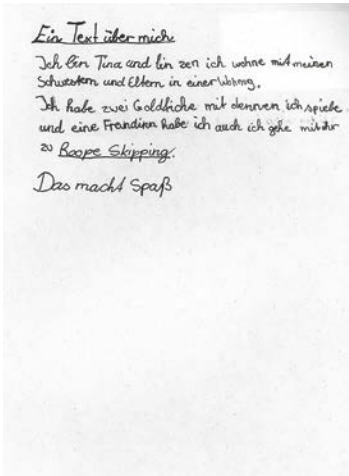 Ein Text über mich
Ich bin Tina und bin zen ich wohne mit meinen
Schwestern und Eltern in einer Wohnng.
Ich habe zwei Goldfiche mit dennen ich spiele
und eine Frandinn habe ich auch ich gehe mit ihr
zu Roope Skipping.
Das macht Spaß